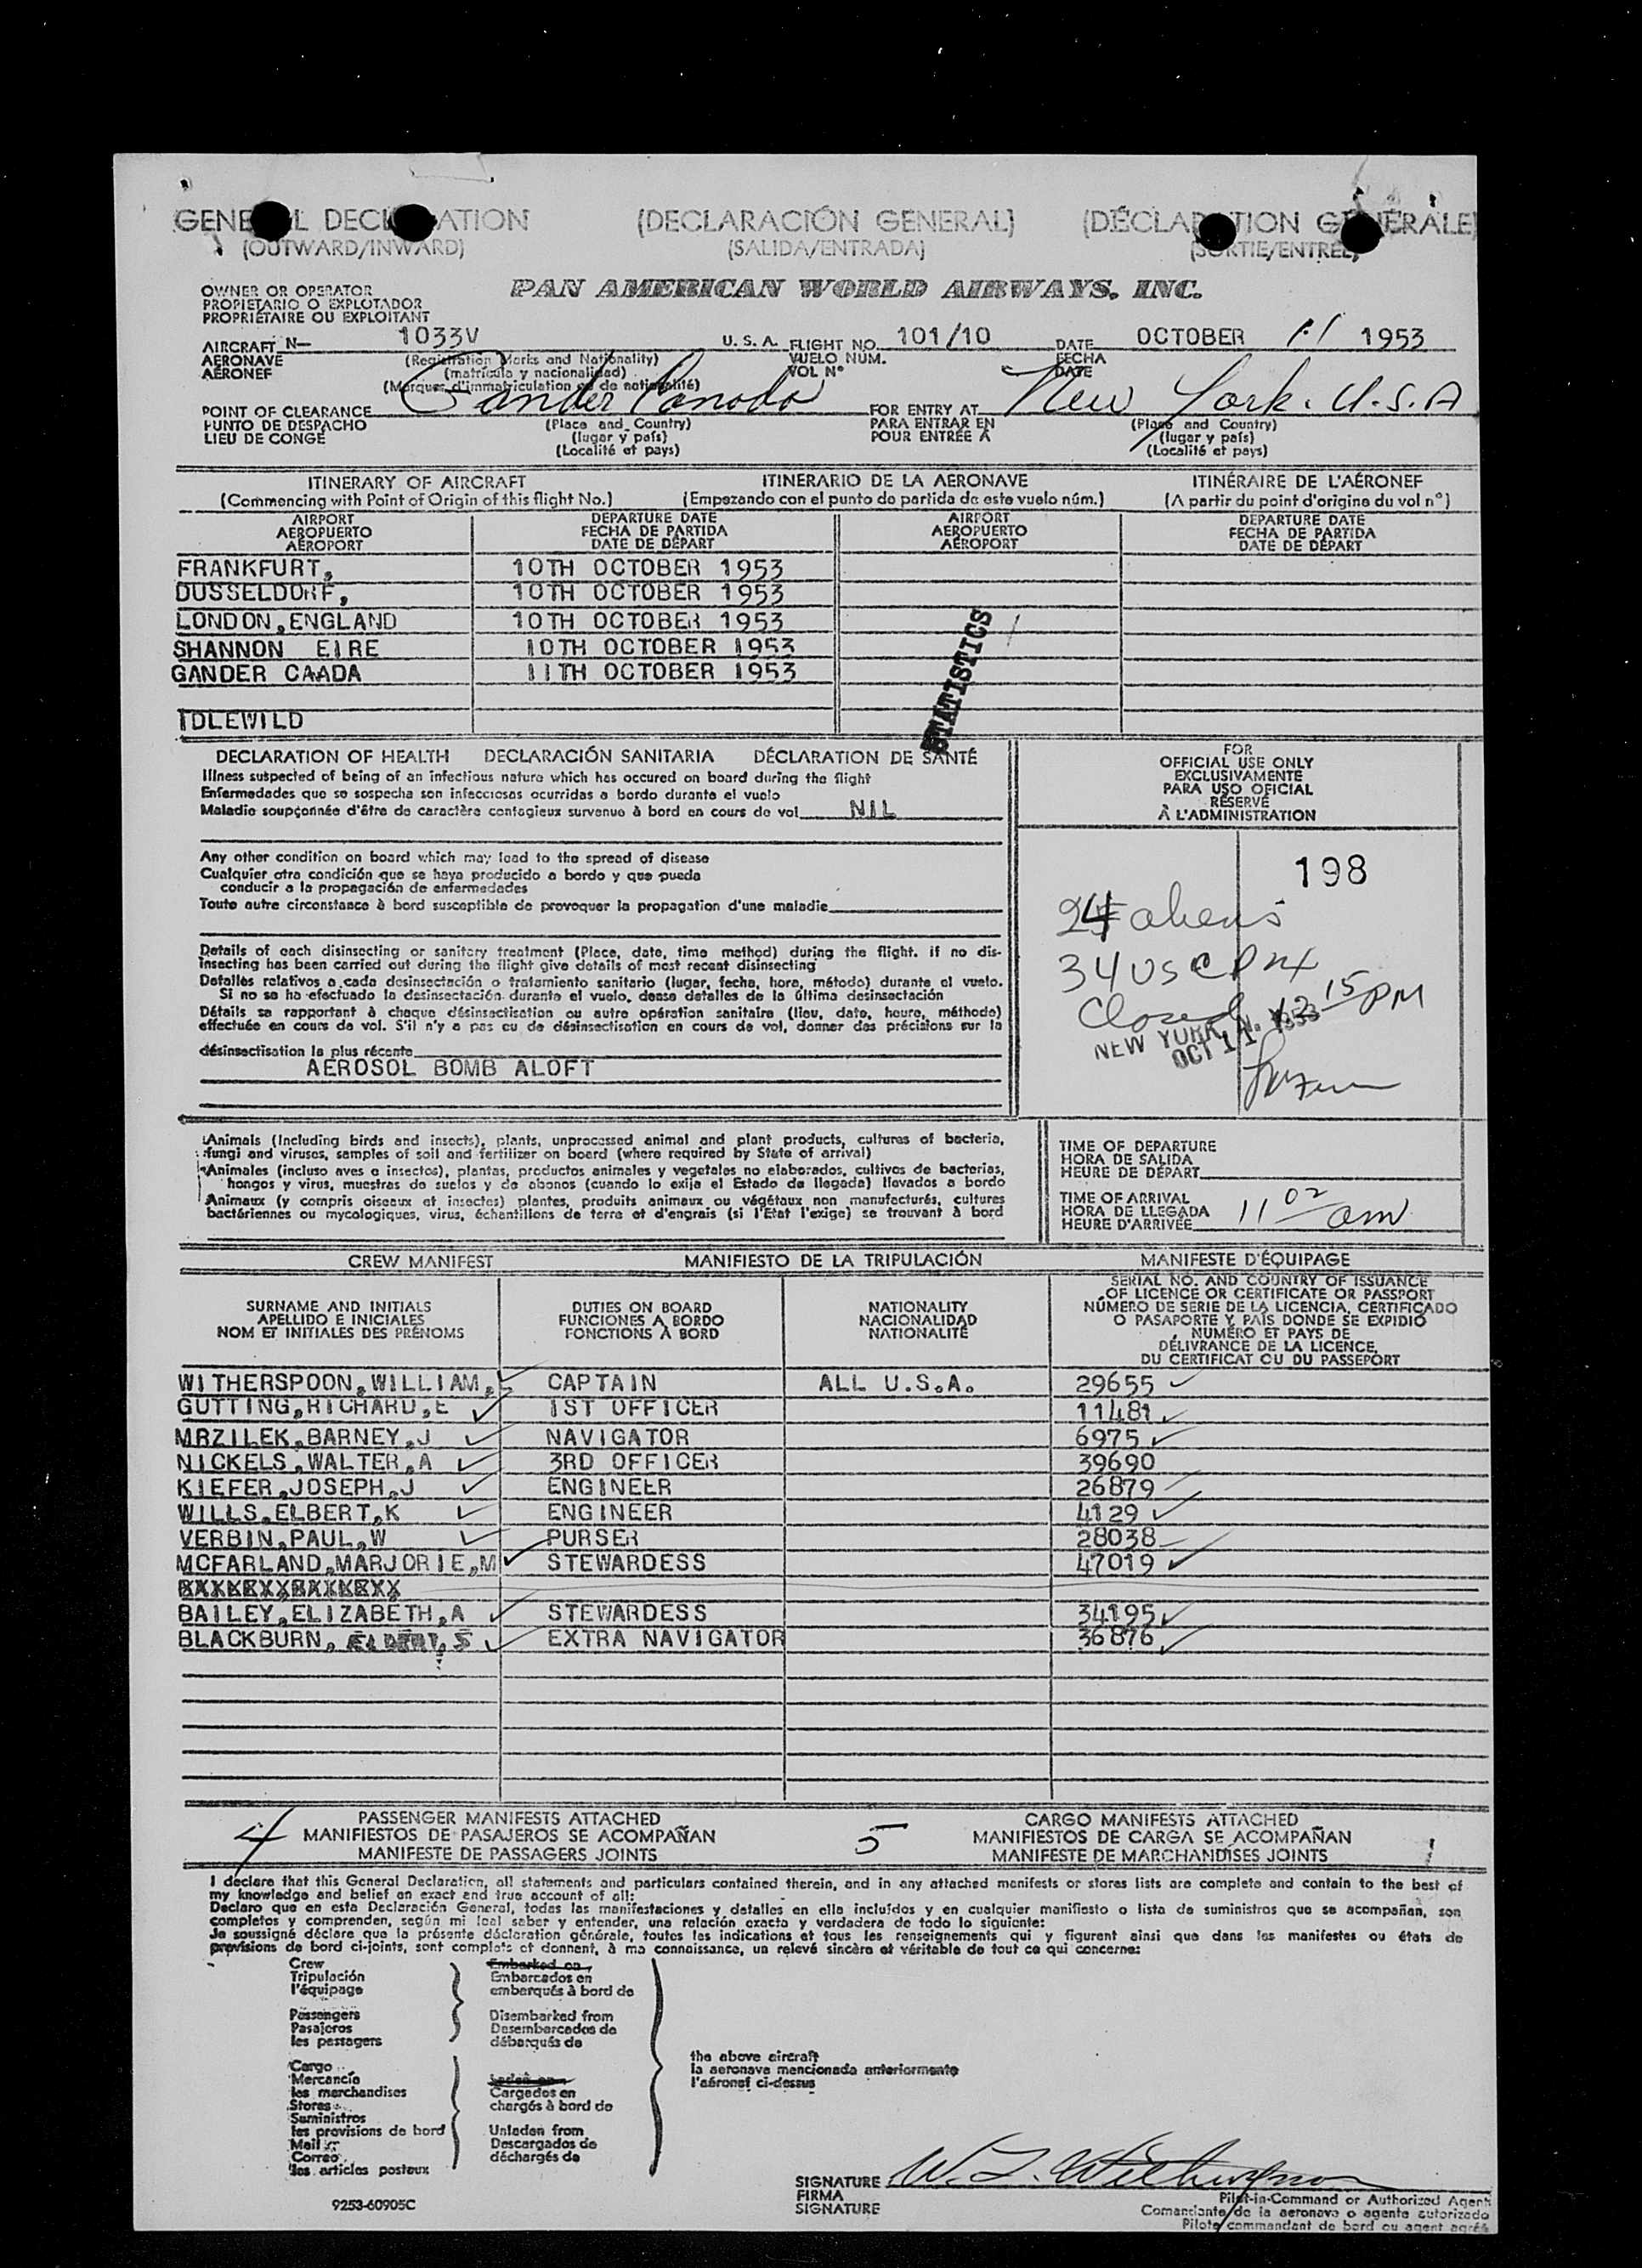 GENERAL DECLARATION (DECLARACIÓN GENERAL) (DÉCLARATION GÉNÉRALE)
(OUTWARD/INWARD) (SALIDA/ENTRADA) (SORTIE/ENTRÉE)
OWNER OR OPERATOR
PROPIETARIO O EXPLOTADOR
PROPRIÉTAIRE OU EXPLOITANT
PAN AMERICAN WORLD AIRWAYS, INC.
AIRCRAFT N— 1033V U. S. A. FLIGHT NO. 101/10 DATE OCTOBER 11 1953
AERONAVE (Registration Marks and Nationality) VUELO NÚM. FECHA
AÉRONEF (matrícula y nacionalidad) VOL Nº DATE
(Marques d'immatriculation et de nationalité)
POINT OF CLEARANCE Gander Canada FOR ENTRY AT New York. U.S.A
PUNTO DE DESPACHO (Place and Country) PARA ENTRAR EN (Place and Country)
LIEU DE CONGÉ (lugar y país) POUR ENTRÉE À (lugar y país)
(Localité et pays) (Localité et pays)
ITINERARY OF AIRCRAFT ITINERARIO DE LA AERONAVE ITINÉRAIRE DE L'AÉRONEF
(Commencing with Point of Origin of this flight No.) (Empezando con el punto de partida de este vuelo núm.) (A partir du point d'origine du vol nº)
AIRPORT DEPARTURE DATE AIRPORT DEPARTURE DATE
AEROPUERTO FECHA DE PARTIDA AEROPUERTO FECHA DE PARTIDA
AÉROPORT DATE DE DÉPART AÉROPORT DATE DE DÉPART
FRANKFURT, 10TH OCTOBER 1953
DUSSELDORF, 10TH OCTOBER 1953
LONDON,ENGLAND 10TH OCTOBER 1953
SHANNON EIRE 10TH OCTOBER 1953
GANDER CAADA 11TH OCTOBER 1953
IDLEWILD
STATISTICS
DECLARATION OF HEALTH DECLARACIÓN SANITARIA DÉCLARATION DE SANTÉ
Illness suspected of being of an infectious nature which has occured on board during the flight
Enfermedades que se sospecha son infecciosas ocurridas a bordo durante el vuelo
Maladie soupçonnée d'être de caractère contagieux survenue à bord en cours de vol NIL
Any other condition on board which may lead to the spread of disease
Cualquier otra condición que se haya producido a bordo y que pueda
conducir a la propagación de enfermedades
Toute autre circonstance à bord susceptible de provoquer la propagation d'une maladie
Details of each disinsecting or sanitary treatment (Place, date, time method) during the flight. if no dis-
insecting has been carried out during the flight give details of most recent disinsecting
Detalles relativos a cada desinsectación o tratamiento sanitario (lugar, fecha, hora, método) durante el vuelo.
Si no se ha efectuado la desinsectación durante el vuelo, dense detalles de la última desinsectación
Détails se rapportant à chaque désinsectisation ou autre opération sanitaire (lieu, date, heure, méthode)
effectuée en cours de vol. S'il n'y a pas eu de désinsectisation en cours de vol, donner des précisions sur la
désinsectisation la plus récente
AEROSOL BOMB ALOFT
FOR
OFFICIAL USE ONLY
EXCLUSIVAMENTE
PARA USO OFICIAL
RÉSERVÉ
À L'ADMINISTRATION
198
24 aliens
34 USC
Closed 12 15 PM
NEW YORK, N. Y.
OCT 11 1953
Animals (Including birds and insects), plants, unprocessed animal and plant products, cultures of bacteria,
fungi and viruses, samples of soil and fertilizer on board (where required by State of arrival)
Animales (incluso aves e insectos), plantas, productos animales y vegetales no elaborados, cultivos de bacterias,
hongos y virus, muestras de suelos y de abonos (cuando lo exija el Estado de llegada) llevados a bordo
Animaux (y compris oiseaux et insectes) plantes, produits animaux ou végétaux non manufacturés, cultures
bactériennes ou mycologiques, virus, échantillons de terre et d'engrais (si l'Etat l'exige) se trouvant à bord
TIME OF DEPARTURE
HORA DE SALIDA
HEURE DE DÉPART
TIME OF ARRIVAL
HORA DE LLEGADA
HEURE D'ARRIVÉE 11 02 am
CREW MANIFEST MANIFIESTO DE LA TRIPULACIÓN MANIFESTE D'ÉQUIPAGE
SURNAME AND INITIALS
APELLIDO E INICIALES
NOM ET INITIALES DES PRÉNOMS
DUTIES ON BOARD
FUNCIONES A BORDO
FONCTIONS À BORD
NATIONALITY
NACIONALIDAD
NATIONALITÉ
SERIAL NO. AND COUNTRY OF ISSUANCE
OF LICENCE OR CERTIFICATE OR PASSPORT
NÚMERO DE SERIE DE LA LICENCIA, CERTIFICADO
O PASAPORTE Y PAÍS DONDE SE EXPIDIÓ
NUMÉRO ET PAYS DE
DÉLIVRANCE DE LA LICENCE,
DU CERTIFICAT OU DU PASSEPORT
WITHERSPOON,WILLIAM, CAPTAIN ALL U.S.A. 29655
GUTTING,RICHARD,E 1ST OFFICER 11481
MRZILEK,BARNEY,J NAVIGATOR 6975
NICKELS,WALTER,A 3RD OFFICER 39690
KIEFER,JOSEPH,J ENGINEER 26879
WILLS,ELBERT,K ENGINEER 4129
VERBIN,PAUL,W PURSER 28038
MCFARLAND,MARJORIE,M STEWARDESS 47019
BAILEY,ELIZABETH,A STEWARDESS 34195
BLACKBURN, EXTRA NAVIGATOR 36876
4 PASSENGER MANIFESTS ATTACHED 5 CARGO MANIFESTS ATTACHED 1
MANIFIESTOS DE PASAJEROS SE ACOMPAÑAN MANIFIESTOS DE CARGA SE ACOMPAÑAN
MANIFESTE DE PASSAGERS JOINTS MANIFESTE DE MARCHANDISES JOINTS
I declare that this General Declaration, all statements and particulars contained therein, and in any attached manifests or stores lists are complete and contain to the best of
my knowledge and belief an exact and true account of all:
Declaro que en esta Declaración General, todas las manifestaciones y detalles en ella incluídos y en cualquier manifiesto o lista de suministros que se acompañan, son
completos y comprenden, según mi leal saber y entender, una relación exacta y verdadera de todo lo siguiente:
Je soussigné déclare que la présente déclaration générale, toutes les indications et tous les renseignements qui y figurent ainsi que dans les manifestes ou états de
provisions de bord ci-joints, sont complets et donnent, à ma connaissance, un relevé sincère et véritable de tout ce qui concerne:
Crew Embarked on
Tripulación Embarcados en
l'équipage embarqués à bord de
Passengers Disembarked from
Pasajeros Desembarcados de
les passagers débarqués de
the above aircraft
la aeronave mencionada anteriormente
l'aéronef ci-dessus
Cargo
Mercancía Laden on
les marchandises Cargados en
Stores chargés à bord de
Suministros
les provisions de bord Unladen from
Mail Descargados de
Correo déchargés de
les articles postaux
SIGNATURE W. L. Witherspoon
FIRMA Pilot-in-Command or Authorized Agent
SIGNATURE Comandante de la aeronave o agente autorizado
Pilote commandant de bord ou agent agréé
9253-60905C